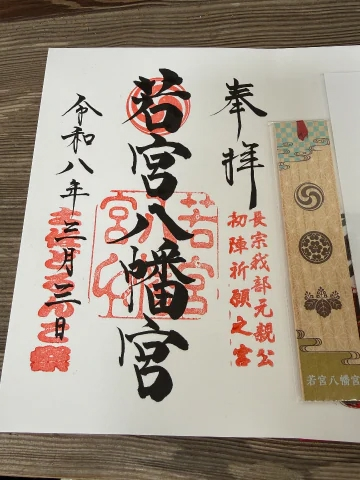 奉拝
長宗我部元親公
初陣祈願之宮
若宮八幡宮
若宮八幡宮
令和八年三月三日
若宮八幡宮